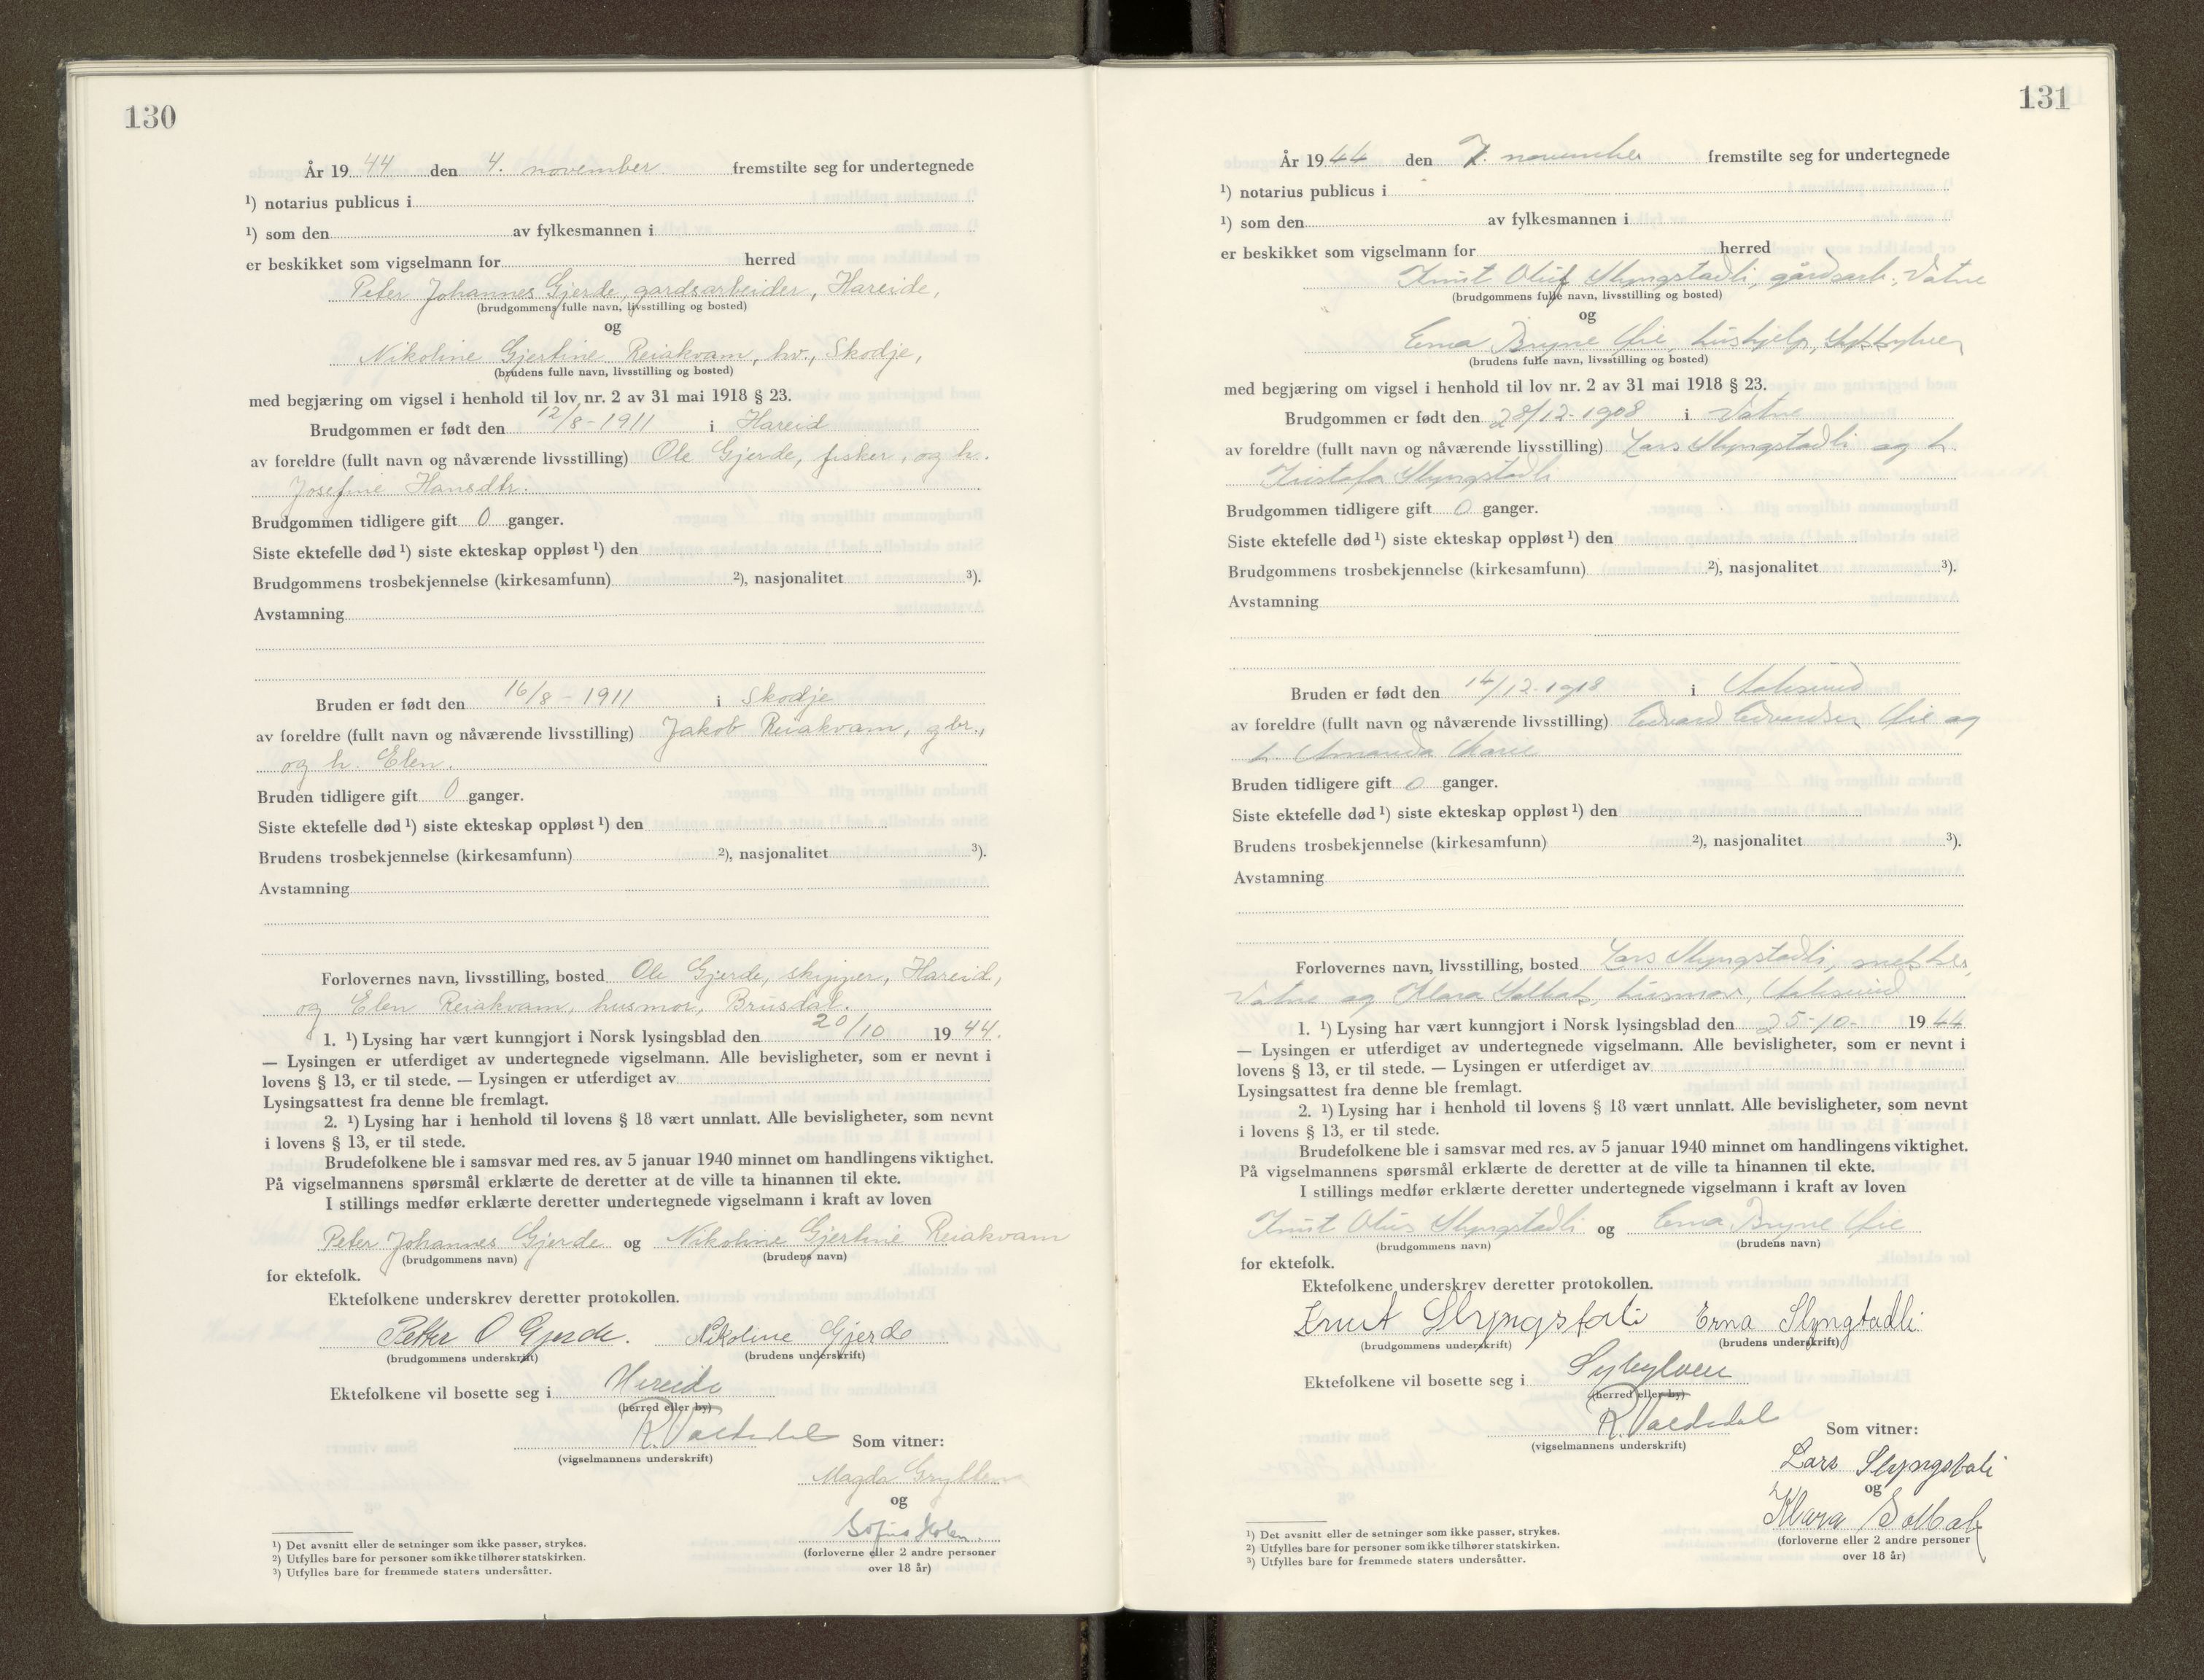 130
År 19 44 den 4. november fremstilte seg for undertegnede
¹) notarius publicus i
¹) som den av fylkesmannen i
er beskikket som vigselmann for herred
Peter Johannes Gjerde, gardsarbeider, Hareide,
(brudgommens fulle navn, livsstilling og bosted)
og
Nikoline Gjertine Reiakvam, hv., Skodje,
(brudens fulle navn, livsstilling og bosted)
med begjæring om vigsel i henhold til lov nr. 2 av 31 mai 1918 § 23.
Brudgommen er født den 12/8-1911 i Hareid
av foreldre (fullt navn og nåværende livsstilling) Ole Gjerde, fisker, og h.
Josefine Hansdtr.
Brudgommen tidligere gift 0 ganger.
Siste ektefelle død ¹) siste ekteskap oppløst ¹) den
Brudgommens trosbekjennelse (kirkesamfunn) ²), nasjonalitet ³).
Avstamning
Bruden er født den 16/8-1911 i Skodje
av foreldre (fullt navn og nåværende livsstilling) Jakob Reiakvam, gbr.,
og h. Elen.
Bruden tidligere gift 0 ganger.
Siste ektefelle død ¹) siste ekteskap oppløst ¹) den
Brudens trosbekjennelse (kirkesamfunn) ²), nasjonalitet ³).
Avstamning
Forlovernes navn, livsstilling, bosted Ole Gjerde, skipper, Hareid,
og Elen Reiakvam, husmor, Brusdal.
1. ¹) Lysing har vært kunngjort i Norsk lysingsblad den 20/10 19 44.
— Lysingen er utferdiget av undertegnede vigselmann. Alle bevisligheter, som er nevnt i
lovens § 13, er til stede. — Lysingen er utferdiget av
Lysingsattest fra denne ble fremlagt.
2. ¹) Lysing har i henhold til lovens § 18 vært unnlatt. Alle bevisligheter, som nevnt
i lovens § 13, er til stede.
Brudefolkene ble i samsvar med res. av 5 januar 1940 minnet om handlingens viktighet.
På vigselmannens spørsmål erklærte de deretter at de ville ta hinannen til ekte.
I stillings medfør erklærte deretter undertegnede vigselmann i kraft av loven
Peter Johannes Gjerde og Nikoline Gjertine Reiakvam
(brudgommens navn) (brudens navn)
for ektefolk.
Ektefolkene underskrev deretter protokollen.
Petter O Gjerde. Nikoline Gjerde
(brudgommens underskrift) (brudens underskrift)
Ektefolkene vil bosette seg i Hareide
(herred eller by)
Som vitner:
(vigselmannens underskrift)
Magda
og
Sofus Holen
(forloverne eller 2 andre personer
over 18 år)
¹) Det avsnitt eller de setninger som ikke passer, strykes.
²) Utfylles bare for personer som ikke tilhører statskirken.
³) Utfylles bare for fremmede staters undersåtter.
131
År 19 44 den 7. november fremstilte seg for undertegnede
¹) notarius publicus i
¹) som den av fylkesmannen i
er beskikket som vigselmann for herred
Knut Oluf Slyngstadli, gårdsarb., Vatne
(brudgommens fulle navn, livsstilling og bosted)
og
Erna Bryne Øie, hushjelp,
(brudens fulle navn, livsstilling og bosted)
med begjæring om vigsel i henhold til lov nr. 2 av 31 mai 1918 § 23.
Brudgommen er født den 28/12-1908 i Vatne
av foreldre (fullt navn og nåværende livsstilling) Lars Slyngstadli og h.
Kristofa Slyngstadli
Brudgommen tidligere gift 0 ganger.
Siste ektefelle død ¹) siste ekteskap oppløst ¹) den
Brudgommens trosbekjennelse (kirkesamfunn) ²), nasjonalitet ³).
Avstamning
Bruden er født den 14/12-1918 i Aalesund
av foreldre (fullt navn og nåværende livsstilling) Edvard Edvardsen Øie og
h. Amanda Marie
Bruden tidligere gift 0 ganger.
Siste ektefelle død ¹) siste ekteskap oppløst ¹) den
Brudens trosbekjennelse (kirkesamfunn) ²), nasjonalitet ³).
Avstamning
Forlovernes navn, livsstilling, bosted Lars Slyngstadli, snekker,
Vatne og Klara Solbak, husmor, Aalesund
1. ¹) Lysing har vært kunngjort i Norsk lysingsblad den 25-10- 19 44
— Lysingen er utferdiget av undertegnede vigselmann. Alle bevisligheter, som er nevnt i
lovens § 13, er til stede. — Lysingen er utferdiget av
Lysingsattest fra denne ble fremlagt.
2. ¹) Lysing har i henhold til lovens § 18 vært unnlatt. Alle bevisligheter, som nevnt
i lovens § 13, er til stede.
Brudefolkene ble i samsvar med res. av 5 januar 1940 minnet om handlingens viktighet.
På vigselmannens spørsmål erklærte de deretter at de ville ta hinannen til ekte.
I stillings medfør erklærte deretter undertegnede vigselmann i kraft av loven
Knut Oluf Slyngstadli og Erna Bryne Øie
(brudgommens navn) (brudens navn)
for ektefolk.
Ektefolkene underskrev deretter protokollen.
Knut Slyngstali Erna Slyngstadli
(brudgommens underskrift) (brudens underskrift)
Ektefolkene vil bosette seg i Sykylven
(herred eller by)
Som vitner:
(vigselmannens underskrift)
Lars Slyngstali
og
Klara Solbak
(forloverne eller 2 andre personer
over 18 år)
¹) Det avsnitt eller de setninger som ikke passer, strykes.
²) Utfylles bare for personer som ikke tilhører statskirken.
³) Utfylles bare for fremmede staters undersåtter.